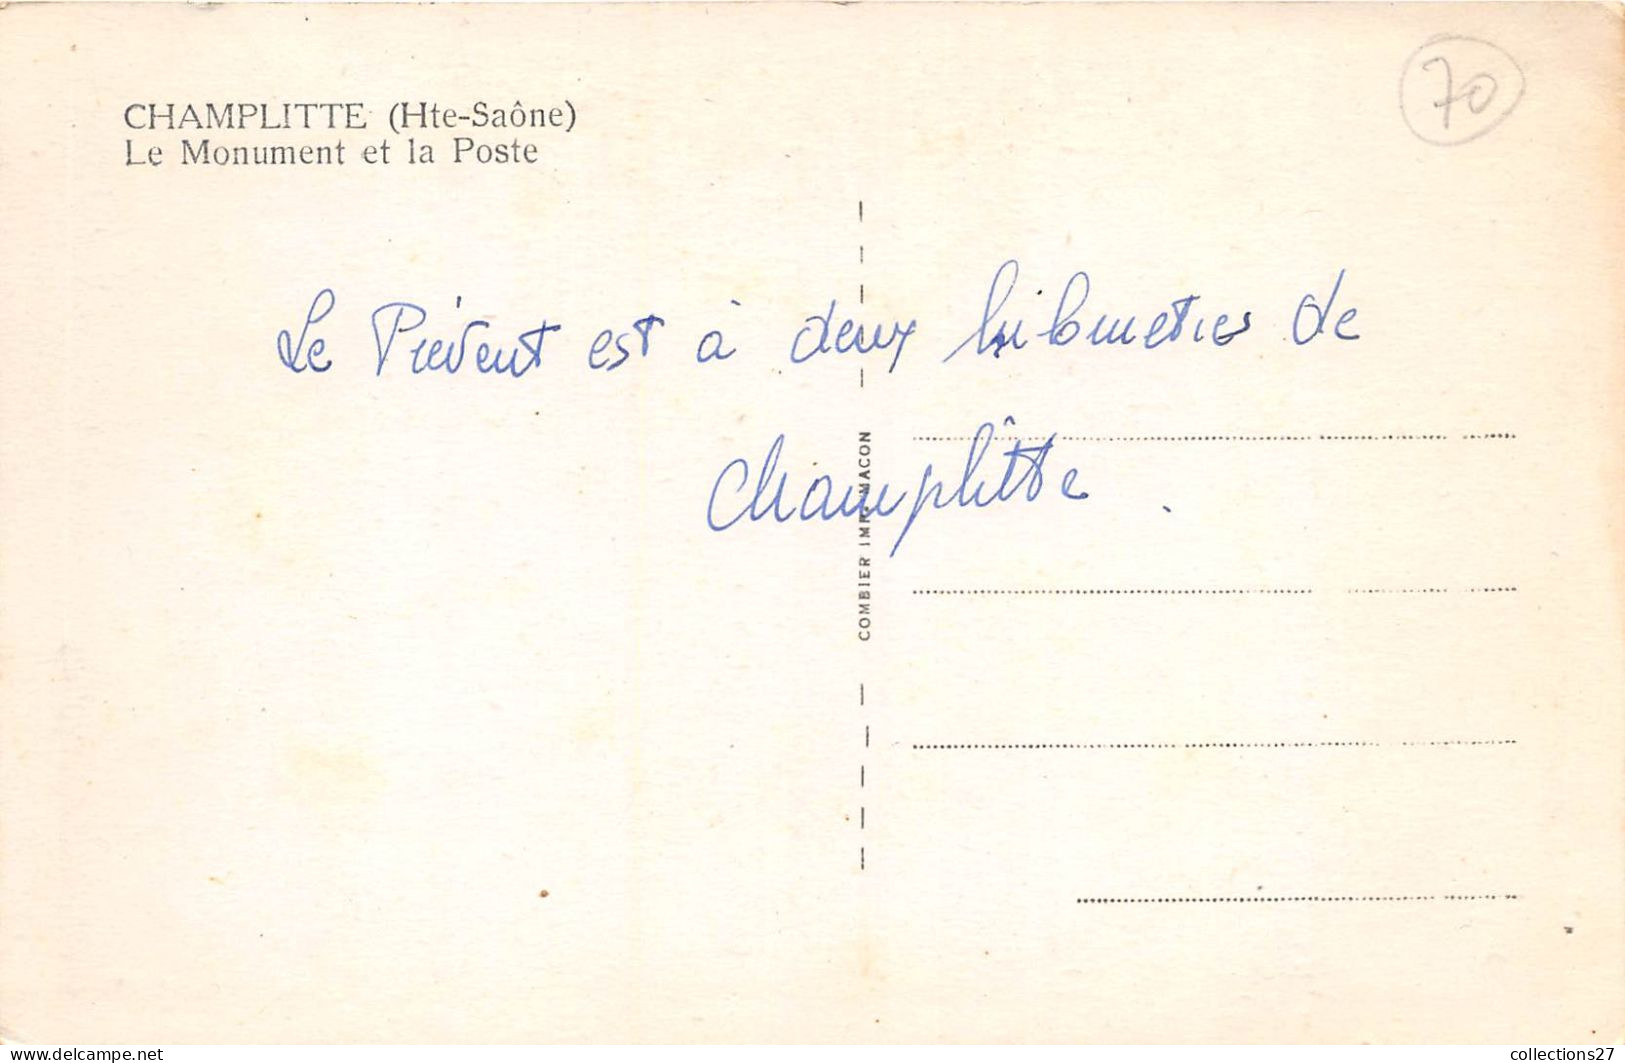 70
CHAMPLITTE (Hte-Saône)
Le Monument et la Poste
Le Prévent est à deux kilometres de
Champlîtte .
COMBIER IMP. MACON
www.delcampe.net
collections27